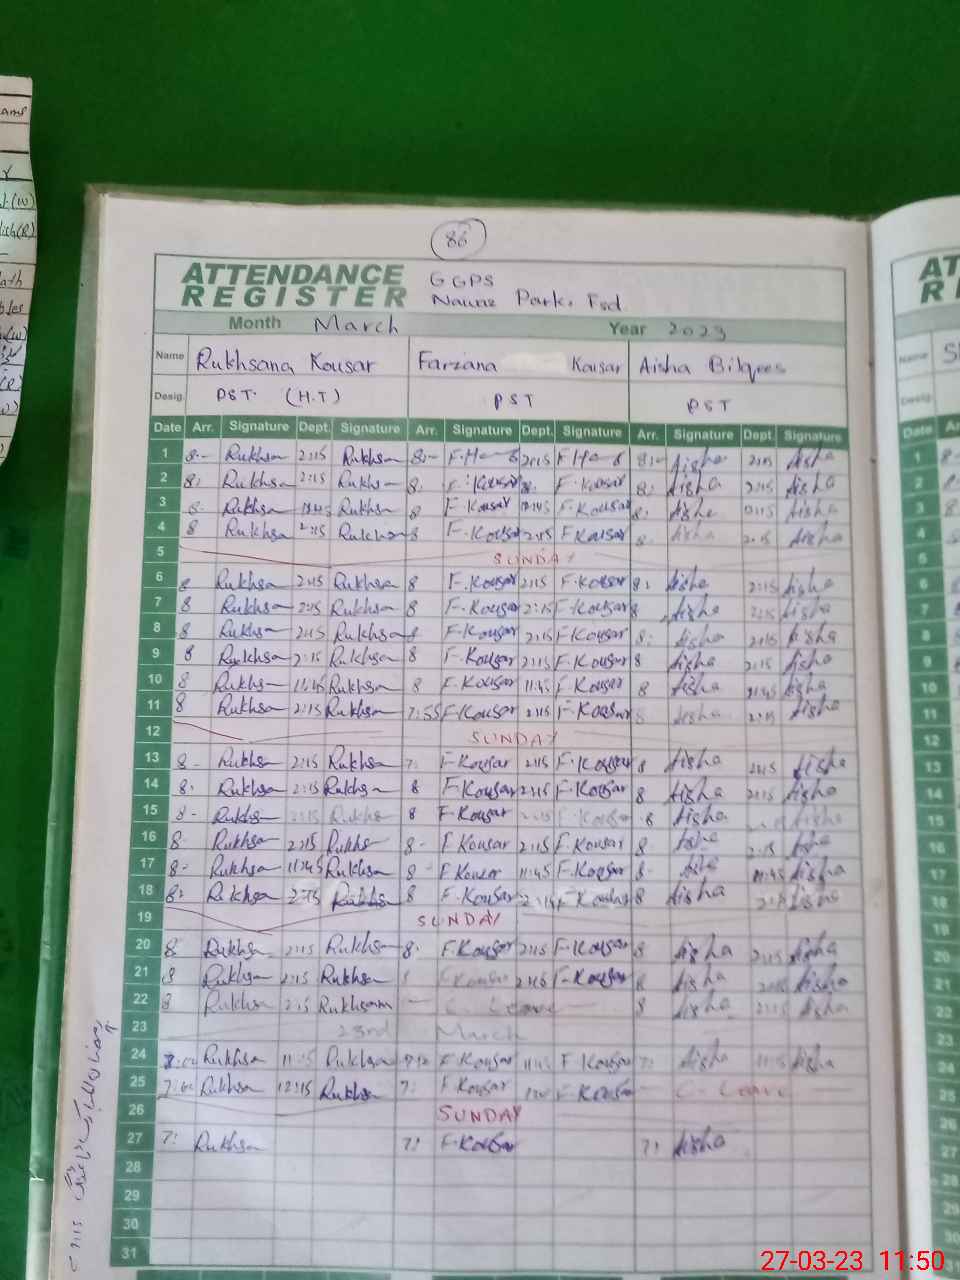 86
ATTENDANCE REGISTER
GGPS
Park. Fsd
Month March Year 2023
Name Rukhsana Kousar Farzana Kousar Aisha Bilqees
Desig. PST. (H.T) PST PST
Date Arr. Signature Dept. Signature Arr. Signature Dept. Signature Arr. Signature Dept. Signature
1 8:- Rukhsa 2:15 Rukhsa 8:- 2:15 8:- Aisha 2:15 Aisha
2 8: Rukhsa 2:15 Rukhsa 8: F. Kousar F. Kousar 8: Aisha 2:15 Aisha
3 8- Rukhsa Rukhsa 8 F. Kousar F. Kousar 8: Aisha Aisha
4 8 Rukhsa 2:15 Rukhsa 8 F. Kousar 2:15 F Kousar 8 Aisha 2:15 Aisha
5 SUNDAY
6 8 Rukhsa 2:15 Rukhsa 8 F. Kousar 2:15 F. Kousar 8: Aisha 2:15 Aisha
7 8 Rukhsa 2:15 Rukhsa 8 F. Kousar 2:15 F Kousar 8 Aisha 2:15 Aisha
8 8 Rukhsa 2:15 Rukhsa 8 F. Kousar 2:15 F Kousar 8: Aisha 2:15 Aisha
9 8 Rukhsa 2:15 Rukhsa 8 F. Kousar 2:15 F. Kousar 8 Aisha 2:15 Aisha
10 8 Rukhsa 11:45 Rukhsa 8 F. Kousar 11:45 F. Kousar 8 Aisha 11:45 Aisha
11 8 Rukhsa 2:15 Rukhsa 7:55 F Kousar 2:15 F Kousar 8 Aisha 2:15 Aisha
12 SUNDAY
13 8- Rukhsa 2:15 Rukhsa 7: F Kousar 2:15 F. Kousar 8 Aisha 2:15 Aisha
14 8. Rukhsa 2:15 Rukhsa 8 F Kousar 2:15 F. Kousar 8 Aisha 2:15 Aisha
15 8- Rukhsa 2:15 Rukhsa 8 F. Kousar F Kousar 8 Aisha Aisha
16 8- Rukhsa 2:15 Rukhsa 8- F Kousar 2:15 F. Kousar 8 Aisha 2:15 Aisha
17 8- Rukhsa 11:45 Rukhsa 8- F Kousar 11:45 F. Kousar 8- Aisha 11:45 Aisha
18 8: Rukhsa 2:15 Rukhsa 8 F. Kousar 2:15 F Kousar 8 Aisha Aisha
19 SUNDAY
20 8 Rukhsa 2:15 Rukhsa 8. F. Kousar 2:15 F. Kousar 8 Aisha 2:15 Aisha
21 8 Rukhsa 2:15 Rukhsa F Kousar 2:15 F. Kousar 8 Aisha 2:15 Aisha
22 8 Rukhsa 2:15 Rukhsana C. Leave 8 Aisha 2:15 Aisha
23 23rd March
24 Rukhsa Rukhsa F Kousar F Kousar 7: Aisha Aisha
25 Rukhsa 12:15 Rukhsa 7: F Kousar F. Kousar C- Leave
26 SUNDAY
27 7: Rukhsa 7: F. Kousar 7: Aisha
28
29
30
31
27-03-23 11:50